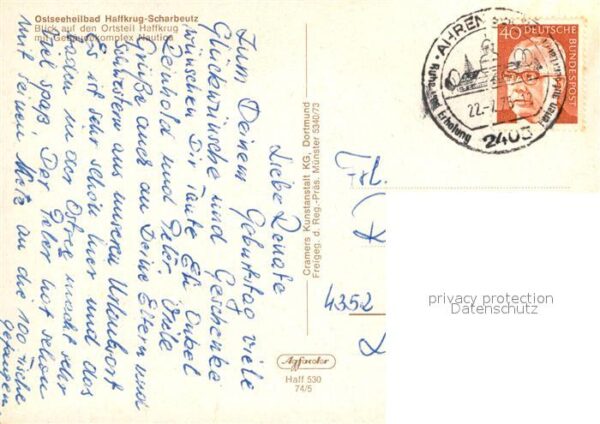 Ostseeheilbad Haffkrug-Scharbeutz
Blick auf den Ortsteil Haffkrug
mit Gesamtkomplex Nautica
Liebe Renate
Zum Deinem Geburtstag viele
Glückwünsche und Geschenke
wünschen Dir Tante Eli Onkel
Reinhold und Peter. Viele
Grüße auch an Deine Eltern und
Schwestern aus unseren Urlaubsort
Es ist sehr schön hier und das
Baden in der Ostsee macht sehr
viel spaß. Der Peter hat schon
mit seinen Netz an die 100 Fische
gefangen
Cramers Kunstanstalt KG, Dortmund
Freigeg. d. Reg.-Präs. Münster 5340/73
Agfacolor
Haff 530
74/5
AHREN
22.-7.75
Ruhe und Erholung
2403
40
DEUTSCHE
BUNDESPOST
Frl.
R
4352
privacy protection
Datenschutz